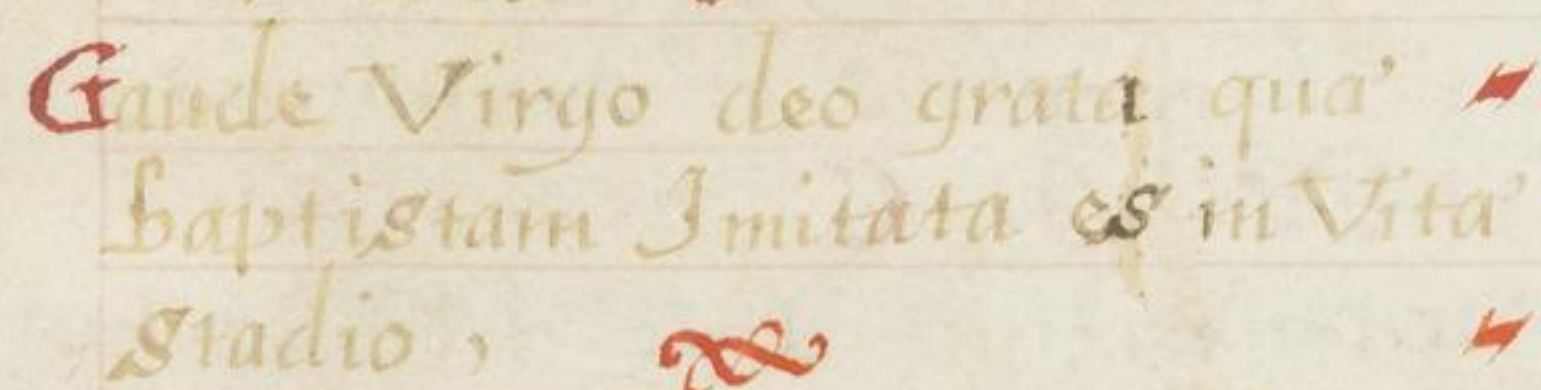 Gaude Virgo deo grata qua'
baptistam Imitata es in Vita'
stadio,